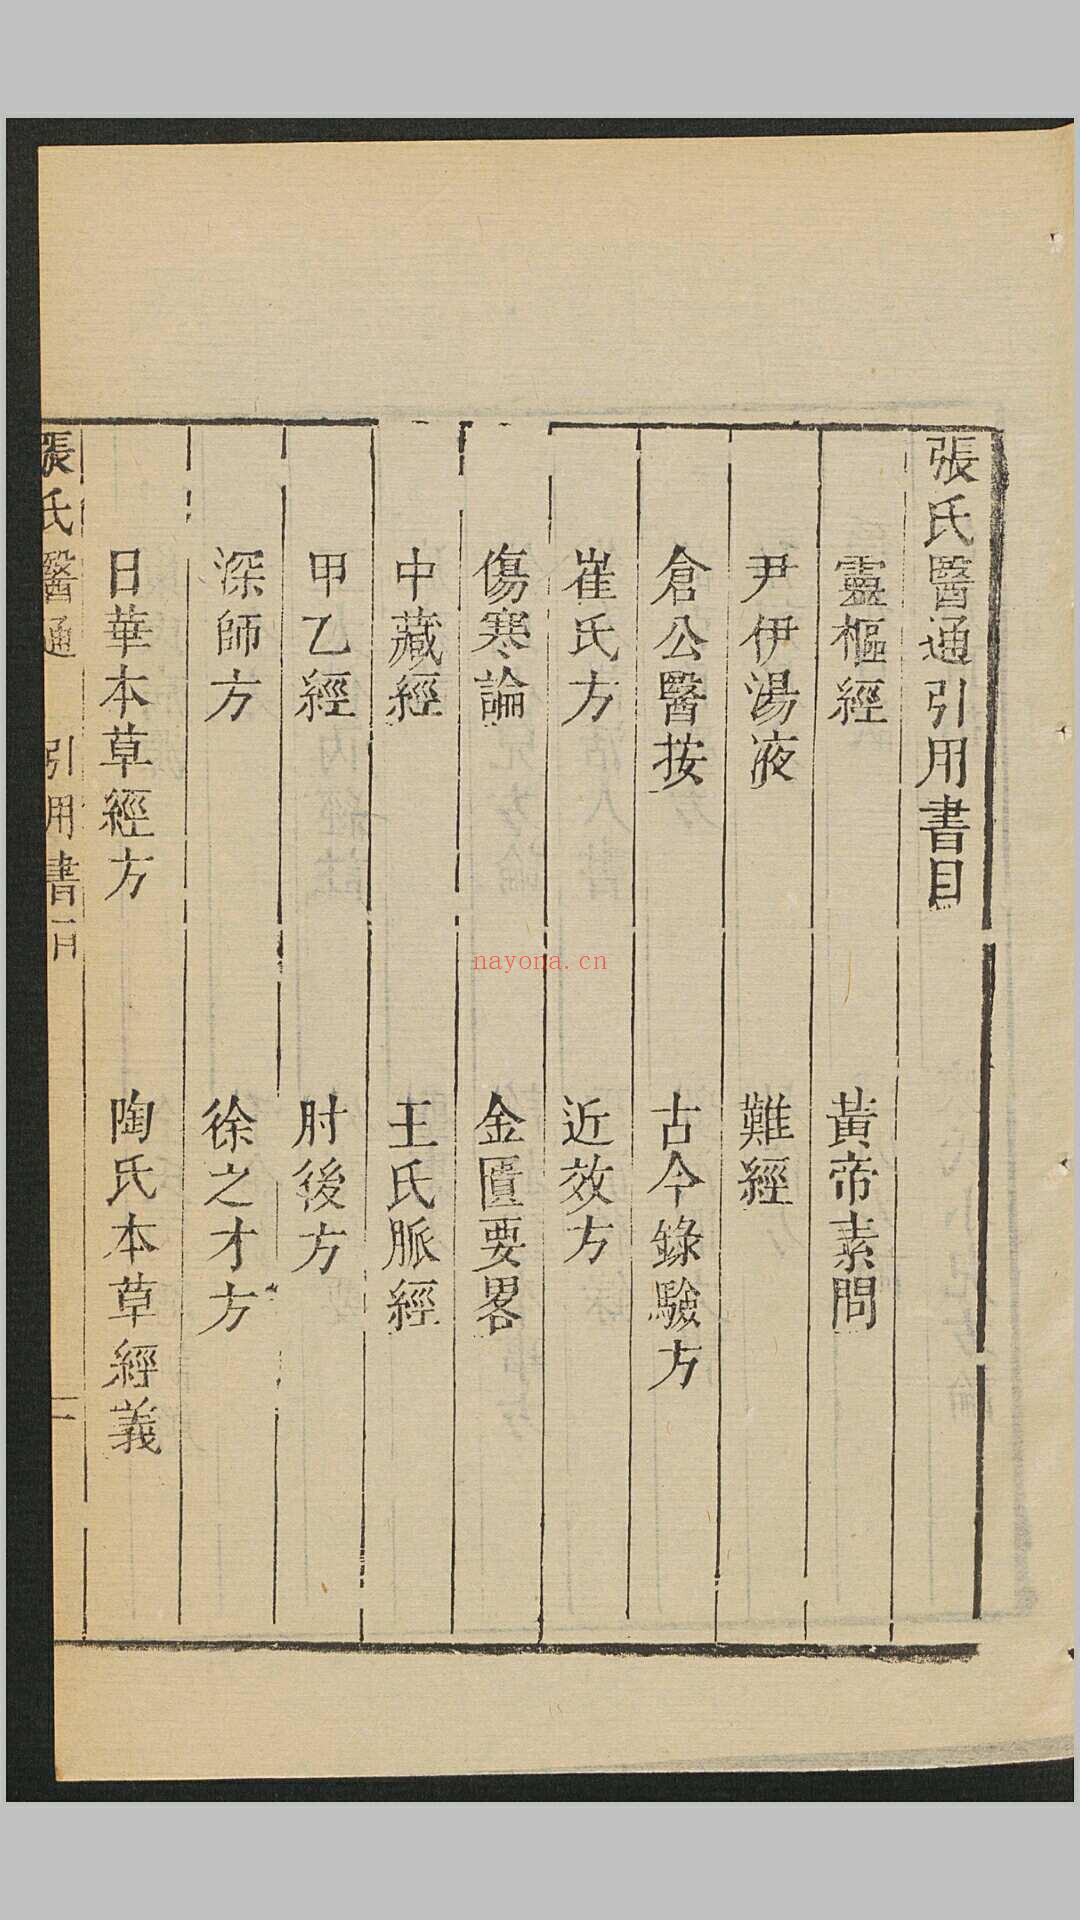 張氏醫通引用書目
靈樞經 黃帝素問
尹伊湯液 難經
倉公醫按 古今錄驗方
崔氏方 近效方
傷寒論 金匱要畧
中藏經 王氏脈經
甲乙經 肘後方
深師方 徐之才方
日華本草經方 陶氏本草經義
張氏醫通 引用書目 一
nayona.cn